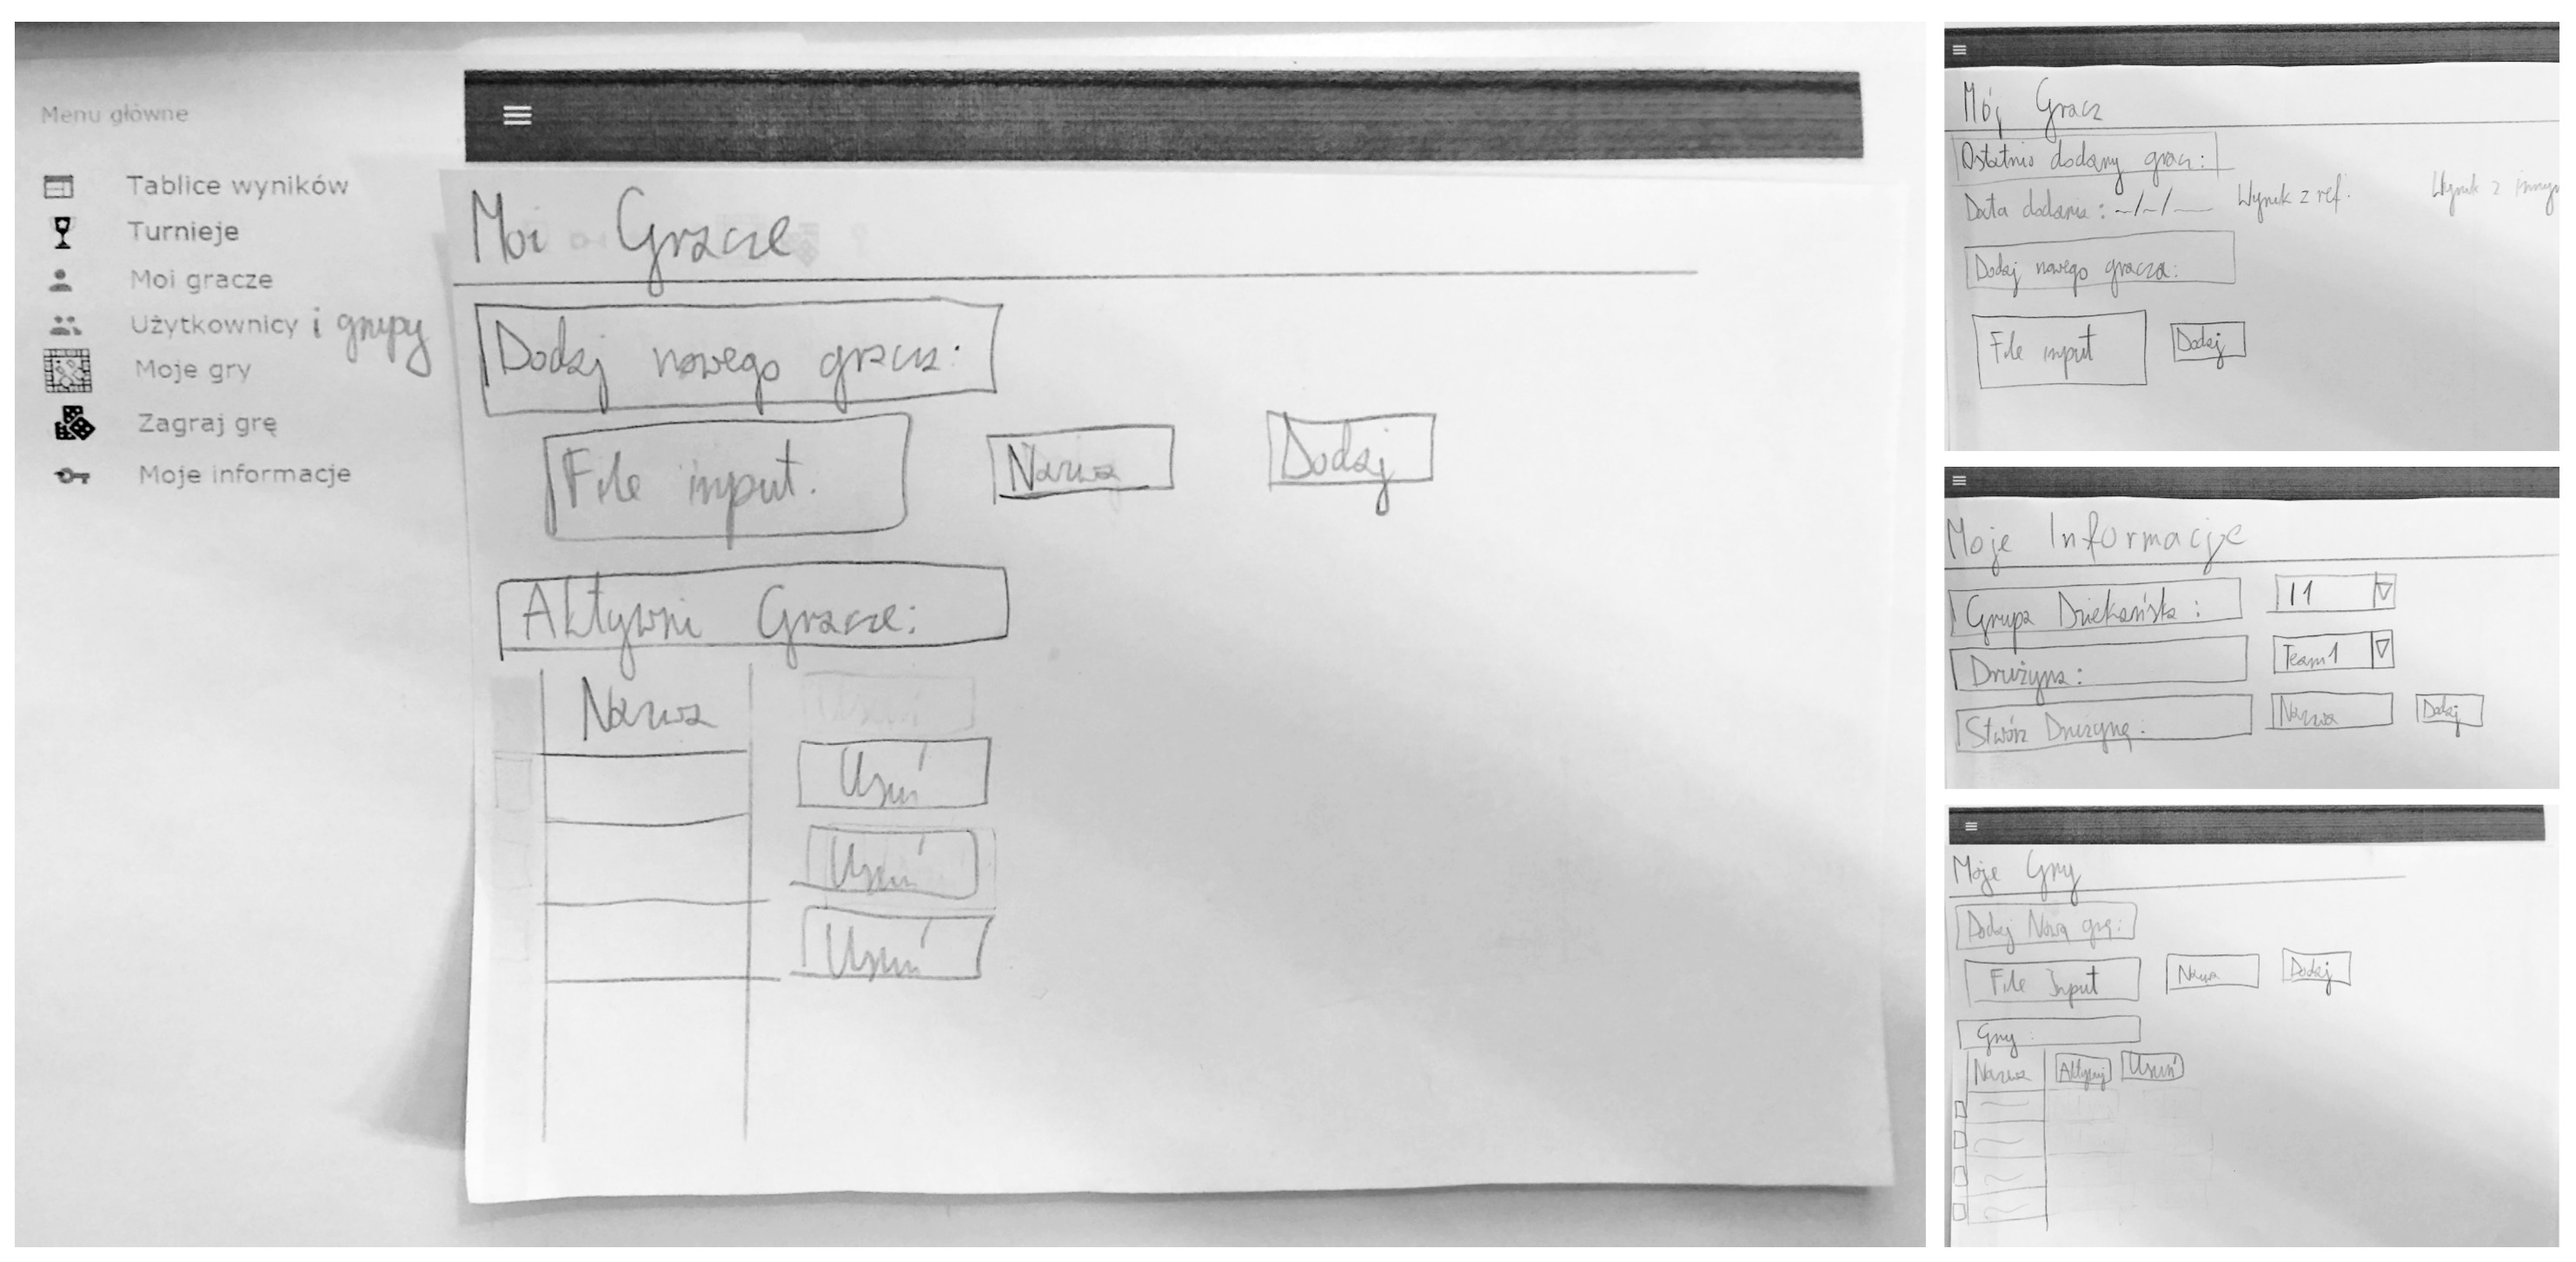 Menu główne
Tablice wyników
Turnieje
Moi gracze
Użytkownicy i grupy
Moje gry
Zagraj grę
Moje informacje
Moi Gracze
Dodaj nowego gracza:
File input.
Nazwa
Dodaj
Aktywni Gracze:
Nazwa
Usuń
Usuń
Usuń
Usuń
Mój Gracz
Ostatnio dodany gracz:
Data dodania: -/-/— Wynik z ref. Wynik z
Dodaj nowego gracza:
File input
Dodaj
Moje Informacje
Grupa Dziekańska: I1
Drużyna: Team1
Stwórz Drużynę: Nazwa Dodaj
Moje Gry
Dodaj Nową grę:
File Input Nazwa Dodaj
Gry:
Nazwa Aktywuj Usuń